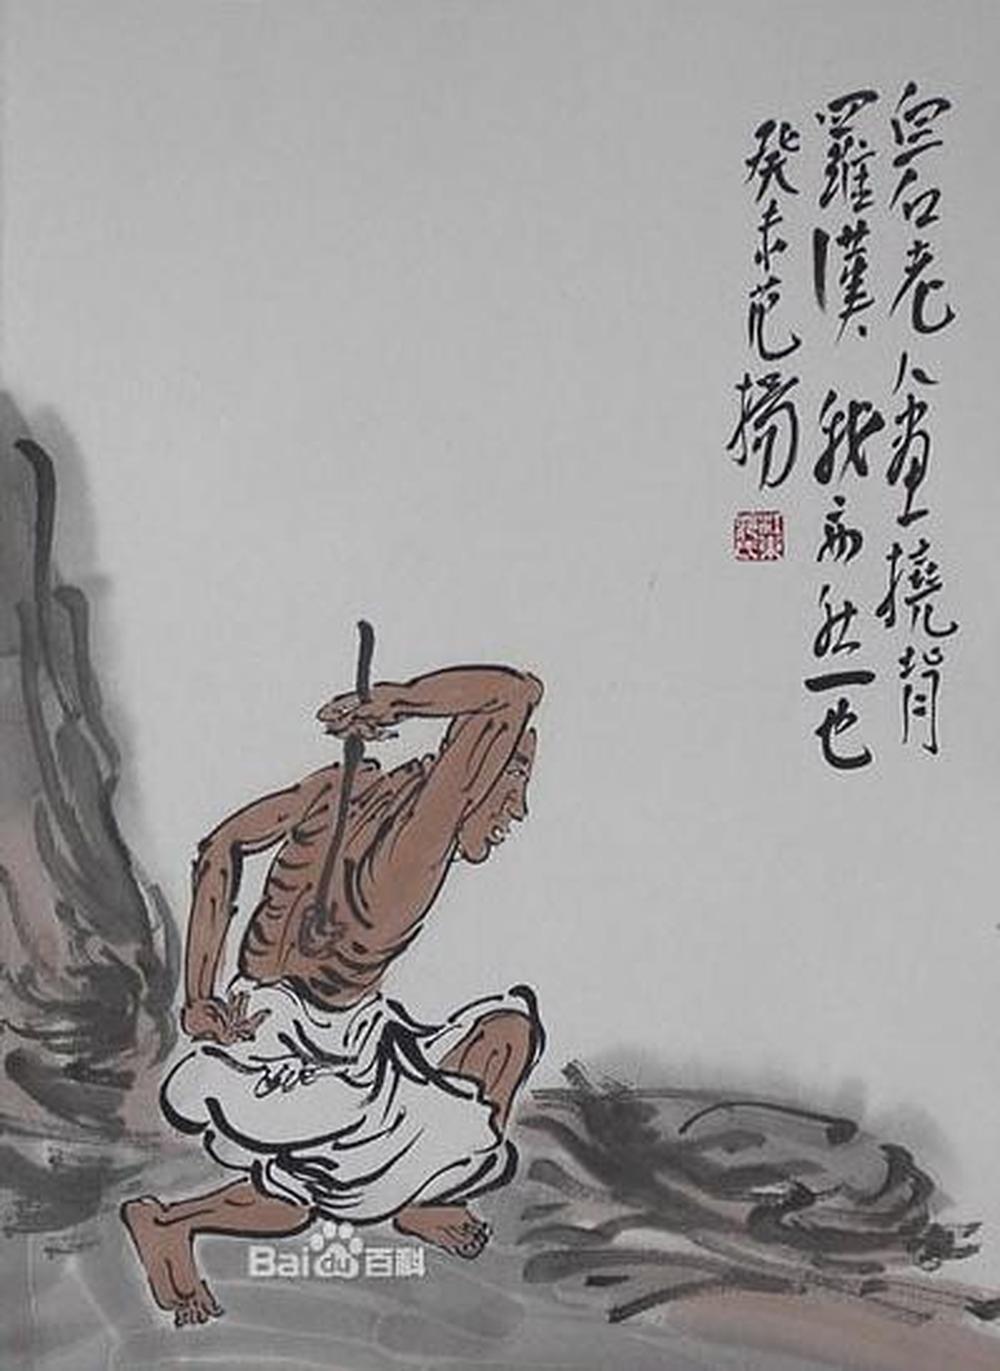 白石老人畫撓背
羅漢我亦然也
癸未范揚
Bai du 百科